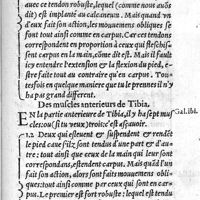 auec ce tendon robuste, lequel (comme nous auõs
dit) est implanté au calcaneum. Mais quand vn
d'eux fait son action, les mouuemens obliques se
font tout ainsi comme en carpus. Car ces tendons
correspondent en proportion à ceux qui fleschis-
sent carpus en la main, côme dit est. Mais il faut i-
cy entendre l'extension & la flexion du pied, e-
stre faite tout au contraire qu'en carpus. Tou-
tesfois en quelque maniere que tu le prennes il n'y
ha pas grand different.
Des muscles anterieurs de Tibia.
EN la partie anterieure de Tibia, il y ha sept mus-
cles ou (si tu veux) trois: c'est asçauoir. Gal. lib.
1.2. Deux qui esteuent & suspendent & rendēt
le pied caue: silz sont tendus d'une part & d'au-
tre: tout ainsi que ceux de la main qui leur sont
correspondans, estendent carpus. Mais quād l'un
fait son action, alors sont faits mouuemens obli-
ques: tout ainsi comme par ceux qui sont en car-
pus. Le premier est fort robuste: lequel est